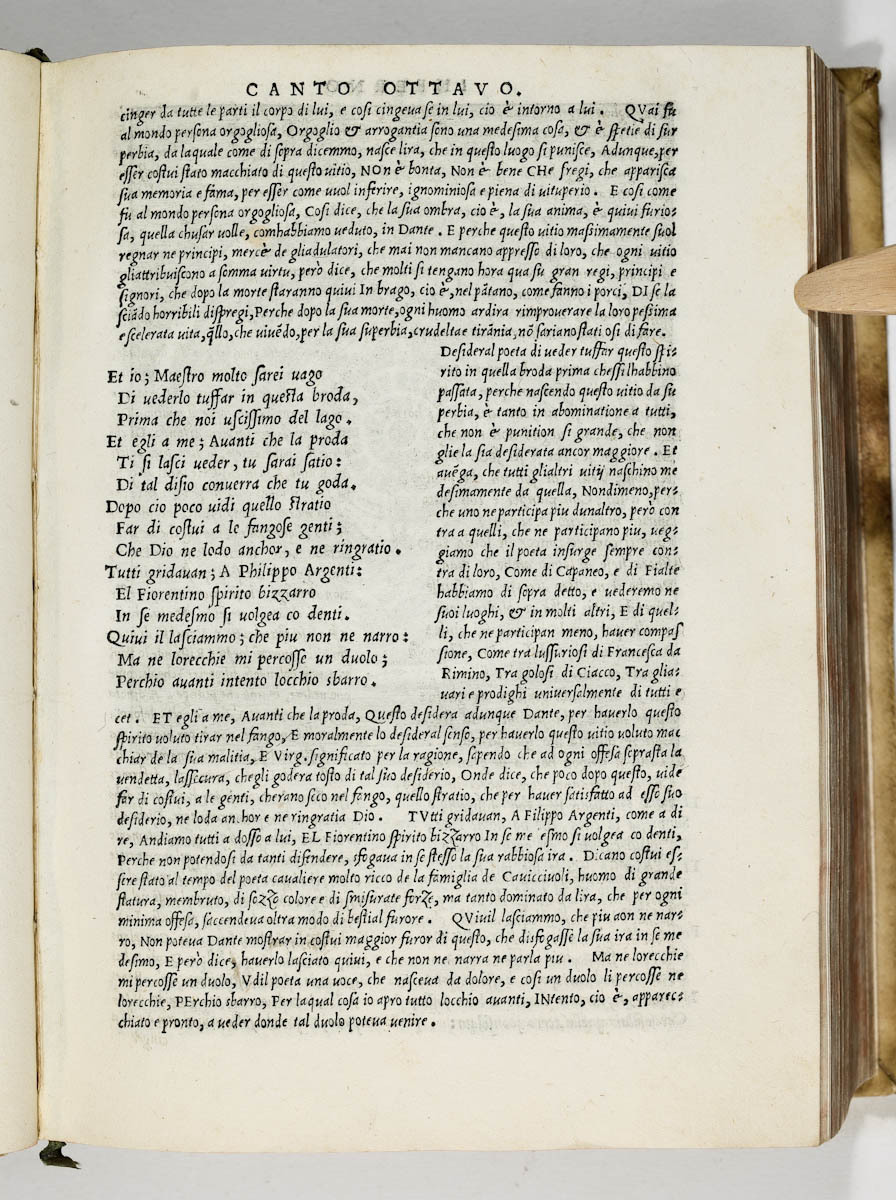 CANTO OTTAVO.
cinger da tutte le parti il corpo di lui, e cosi cingeva se in lui, cio è intorno a lui. QVai fu
al mondo persona orgogliosa, Orgoglio & arrogantia sono una medesima cosa, & è spetie di sur
perbia, da laquale come di sopra dicemmo, nasce lira, che in questo luogo si punisce, Adunque, per
esser costui stato macchiato di questo vitio, NOn è bonta, Non è bene CHe fregi, che apparisca
sua memoria e fama, per esser come vuol inferire, ignominiosa e piena di vituperio. E cosi come
fu al mondo persona orgogliosa, Cosi dice, che la sua ombra, cio è, la sua anima, è quivi furio-
sa, quella chusar volle, comhabbiamo veduto, in Dante. E perche questo vitio massimamente suol
regnar ne principi, mercè de gliadulatori, che mai non mancano appresso di loro, che ogni vitio
gliattribuiscono a somma virtu, però dice, che molti si tengano hora qua su gran regi, principi e
signori, che dopo la morte staranno quivi In brago, cio è, nel pãtano, come fanno i porci, DI se la
sciãdo horribili dispregi, Perche dopo la sua morte, ogni huomo ardira rimproverare la loro pessima
e scelerata vita, q̃llo, che vivẽdo, per la sua superbia, crudelta e tirãnia, nõ sariano stati osi di fare.
Et io; Maestro molto sarei vago
Di vederlo tuffar in questa broda,
Prima che noi uscissimo del lago.
Et egli a me; Avanti che la proda
Ti si lasci veder, tu sarai satio:
Di tal disio converra che tu goda.
Dopo cio poco vidi quello stratio
Far di costui a le fangose genti;
Che Dio ne lodo anchor, e ne ringratio.
Tutti gridavan; A Philippo Argenti:
El Fiorentino spirito bizzarro
In se medesmo si volgea co denti.
Quivi il lasciammo; che piu non ne narro:
Ma ne lorecchie mi percosse un duolo;
Perchio avanti intento locchio sbarro.
Desideral poeta di veder tuffar questo spi-
rito in quella broda prima chessi lhabbino
passata, perche nascendo questo vitio da su
perbia, è tanto in abominatione a tutti,
che non è punition si grande, che non
glie la sia desiderata ancor maggiore. Et
avẽga, che tutti glialtri vitij naschino me
desimamente da quella, Nondimeno, per-
che uno ne participa piu dunaltro, però con
tra a quelli, che ne participano piu, veg-
giamo che il poeta insurge sempre con-
tra di loro, Come di Capaneo, e di Fialte
habbiamo di sopra detto, e vederemo ne
suoi luoghi, & in molti altri, E di quel-
li, che ne participan meno, haver compas
sione, Come tra lussuriosi di Francesca da
Rimino, Tra golosi di Ciacco, Tra glia-
vari e prodighi universalmente di tutti e
cet. ET egli a me, Avanti che la proda, Questo desidera adunque Dante, per haverlo questo
spirito voluto tirar nel fango, E moralmente lo desideral senso, per haverlo questo vitio voluto mac
chiar de la sua malitia, E Virg. significato per la ragione, sapendo che ad ogni offesa soprasta la
vendetta, lassecura, chegli godera tosto di tal suo desiderio, Onde dice, che poco dopo questo, vide
far di costui, a le genti, cherano seco nel fango, quello stratio, che per haver satisfatto ad esso suo
desiderio, ne loda anchor e ne ringratia Dio. TVtti gridavan, A Filippo Argenti, come a di
re, Andiamo tutti a dosso a lui, EL Fiorentino spirito bizzarro In se me esmo si volgea co denti,
Perche non potendosi da tanti difendere, sfogava in se stesso la sua rabbiosa ira. Dicano costui es-
sere stato al tempo del poeta cavaliere molto ricco de la famiglia de Cavicciuoli, huomo di grande
statura, membruto, di sozzo colore e di smisurate forze, ma tanto dominato da lira, che per ogni
minima offesa, saccendeva oltra modo di bestial furore. QVivil lasciammo, che piu aon ne nar-
ro, Non poteva Dante mostrar in costui maggior furor di questo, che disfogasse la sua ira in se me
desimo, E però dice, haverlo lasciato quivi, e che non ne narra ne parla piu. Ma ne lorecchie
mi percosse un duolo, Vdil poeta una voce, che nasceva da dolore, e cosi un duolo li percosse ne
lorecchie, PErchio sbarro, Per laqual cosa io apro tutto locchio avanti, INtento, cio è, apparec-
chiato e pronto, a veder donde tal duolo poteva venire.